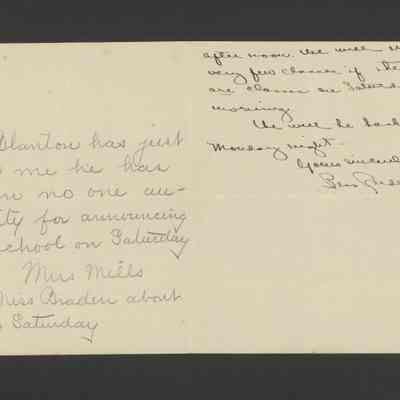 Blanton has just
me he has
no one au-
ity for announcing
school on Saturday
Mrs Mills
Miss Braden about
Saturday
after noon. We will
very few classes if the
are classes on Saturd
morning.
We will be back
Monday night.
Yours sincere